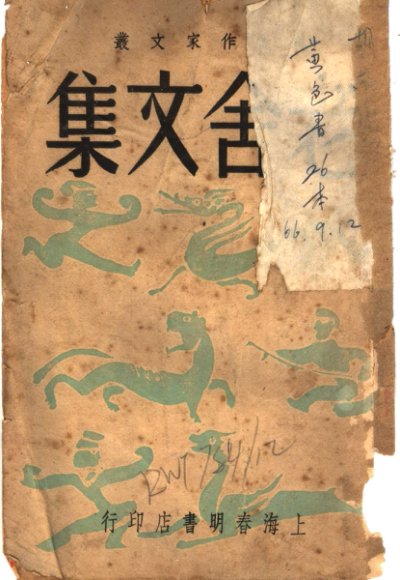 作家文叢
舍文集
黄色書26本
66.9.12
上海春明書店印行